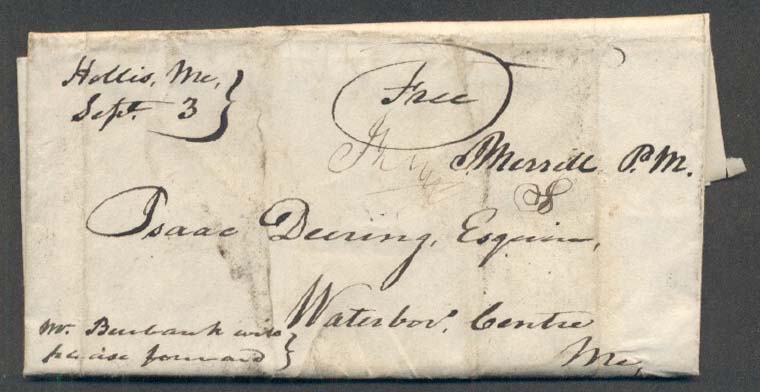 Hollis, Me,
Sept. 3
Free
Merrill P.M.
Isaac Deering, Esquire,
Waterboro', Centre
Me,
Mr. Burbank will
please forward